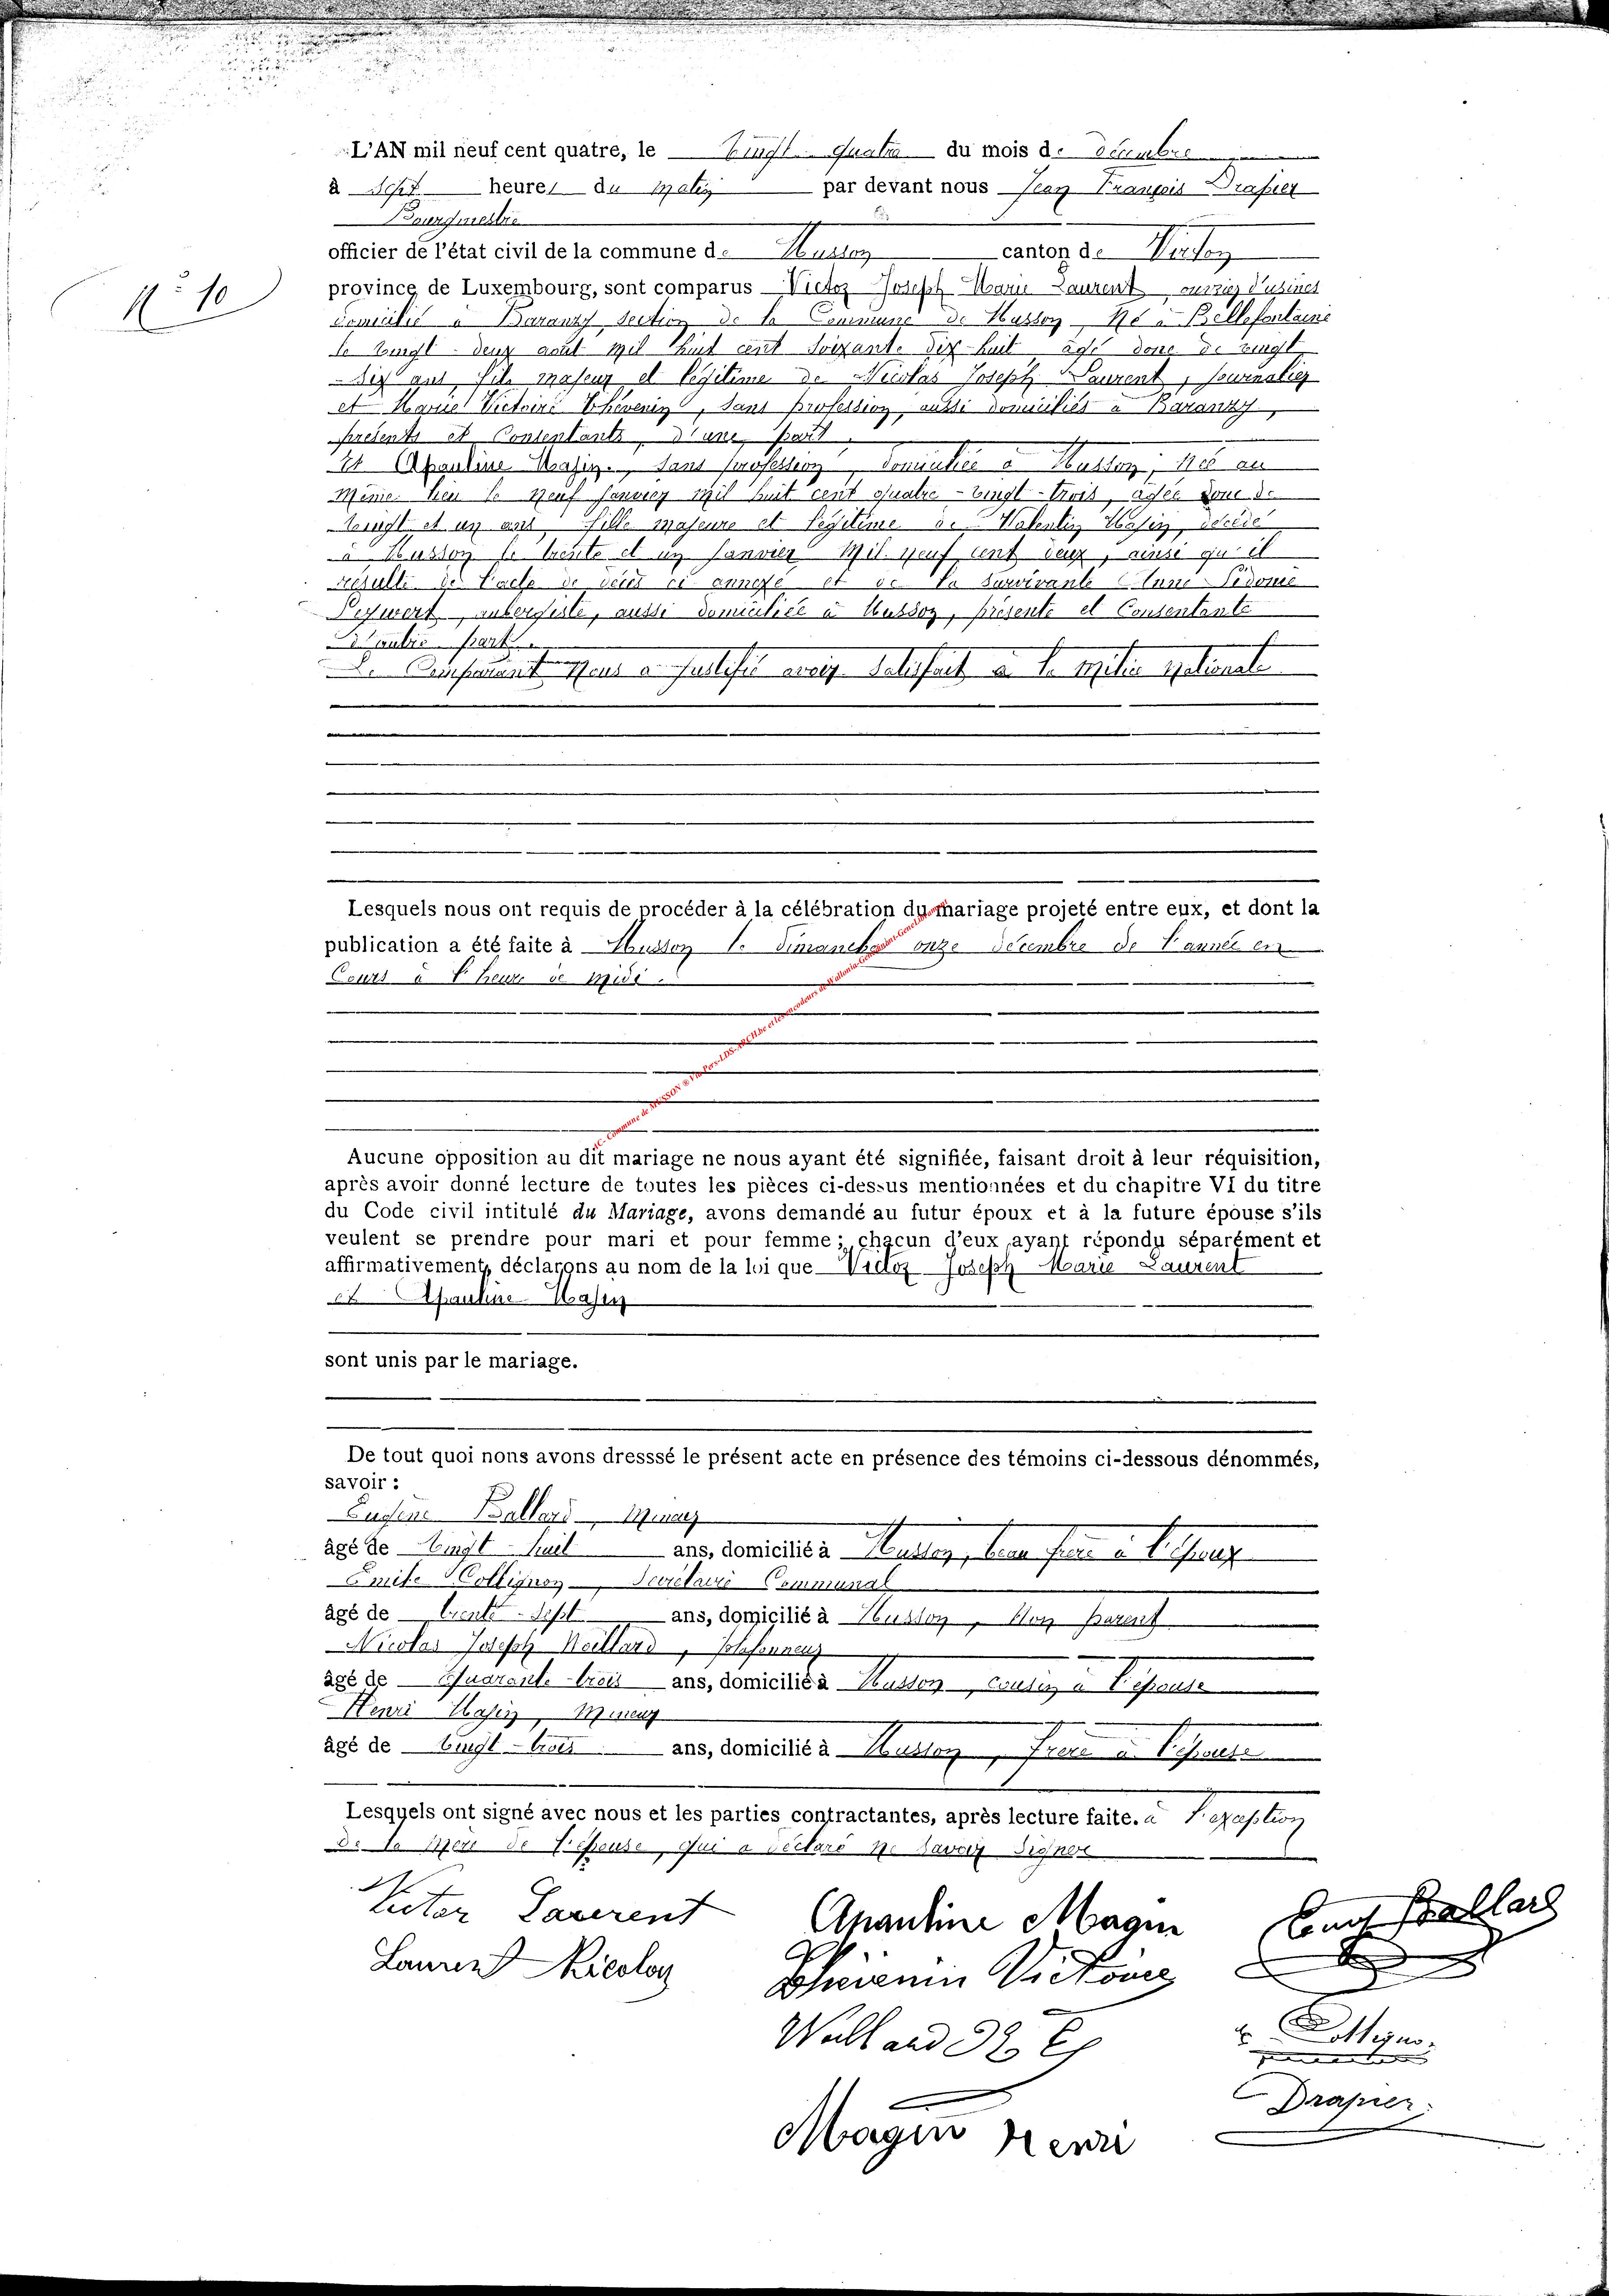 L'AN mil neuf cent quatre, le vingt-quatre du mois de décembre
à sept heures du matin par devant nous Jean François Drapier
Bourgmestre
officier de l'état civil de la commune de Musson canton de Virton
N° 10
province de Luxembourg, sont comparus Victor Joseph Marie Laurent, ouvrier d'usines
domicilié à Baranzy section de la Commune de Musson, Né à Bellefontaine
le vingt-deux août mil huit cent soixante dix-huit, âgé donc de vingt
-six ans, fils majeur et légitime de Nicolas Joseph Laurent, journalier
et Marie Victoire Thévenin, sans profession, aussi domiciliés à Baranzy,
présents et Consentants, d'une part.
Et Apauline Magin, sans profession, domiciliée à Musson, Née au
même lieu le neuf janvier mil huit cent quatre-vingt-trois, âgée donc de
vingt et un ans, fille majeure et légitime de Valentin Magin, décédé
à Musson le trente et un janvier mil neuf cent deux, ainsi qu'il
résulte de l'acte de décès ci annexé et de la survivante Anne Sidonie
aubergiste, aussi domiciliée à Musson, présente et Consentante
d'autre part.
Le Comparant Nous a justifié avoir satisfait à la milice nationale
Lesquels nous ont requis de procéder à la célébration du mariage projeté entre eux, et dont la
publication a été faite à Musson le Dimanche onze décembre de l'année en
Cours à l'heure de midi.
AC- Commune de MUSSON ® Via Pers-LDS-ARCH.be et les encodeurs de Wallonia-Geneanet-GeneLibramont
Aucune opposition au dit mariage ne nous ayant été signifiée, faisant droit à leur réquisition,
après avoir donné lecture de toutes les pièces ci-dessus mentionnées et du chapitre VI du titre
du Code civil intitulé du Mariage, avons demandé au futur époux et à la future épouse s'ils
veulent se prendre pour mari et pour femme; chacun d'eux ayant répondu séparément et
affirmativement, déclarons au nom de la loi que Victor Joseph Marie Laurent
et Apauline Magin
sont unis par le mariage.
De tout quoi nons avons dresssé le présent acte en présence des témoins ci-dessous dénommés,
savoir :
Eugène Ballard, Mineur
âgé de vingt-huit ans, domicilié à Musson, beau frère à l'époux
Emile Collignon, Secrétaire Communal
âgé de trente-sept ans, domicilié à Musson, Non parent
Nicolas Joseph Weilland, plafonneur
âgé de Quarante-trois ans, domicilié à Musson, cousin à l'épouse
Henri Magin, Mineur
âgé de vingt-trois ans, domicilié à Musson, frère à l'épouse
Lesquels ont signé avec nous et les parties contractantes, après lecture faite. à l'exception
de la mère de l'épouse, qui a déclaré ne savoir signer
Victor Laurent Apauline Magin Eug Ballard
Laurent Nicolas Thévenin Victoire
E Collignon
Drapier
Magin Henri